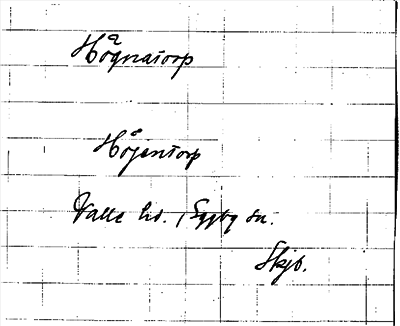 Högnatorp
Höjentorp
Valle hd. Eggby sn.
Skjb.